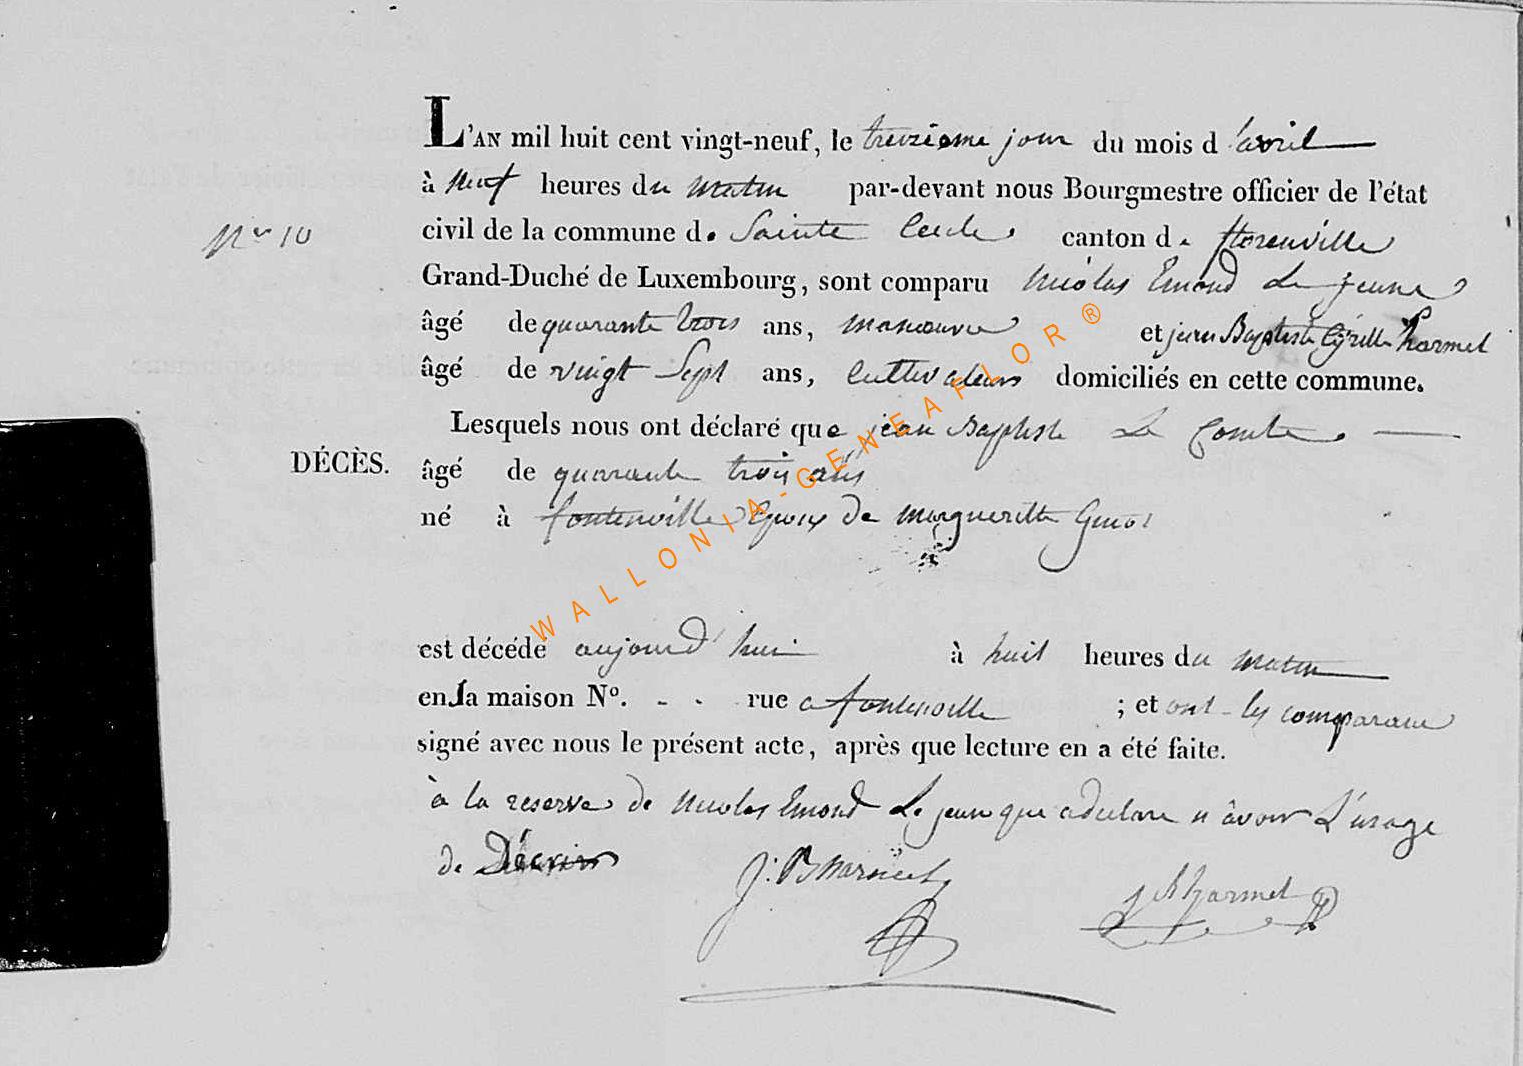 L'AN mil huit cent vingt-neuf, le treizieme jour du mois d'avril
à neuf heures du matin par-devant nous Bourgmestre officier de l'état
civil de la commune de Sainte Cecile canton de florenville
N° 10
Grand-Duché de Luxembourg, sont comparu Nicolas Emond Le jeune
âgé de quarante trois ans, manoeuvre et jean Baptiste Cyrille harmel
âgé de vingt Sept ans, cultivateurs domiciliés en cette commune.
Lesquels nous ont déclaré que jean Baptiste Le Comte
DÉCÈS.
âgé de quarante trois ans
né à fontenoille Epoux de margueritte
est décédé aujourd'hui à huit heures du matin
en la maison N°. - - rue a fontenoille ; et ont les comparans
signé avec nous le présent acte, après que lecture en a été faite.
à la reserve de Nicolas Emond Le jeune que a declare n'avoir L'usage
de D'écrire
harmel
WALLONIA-GENEAFLOR®